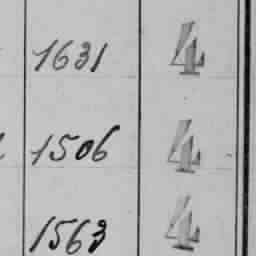 1631 4
1506 4
1563 4